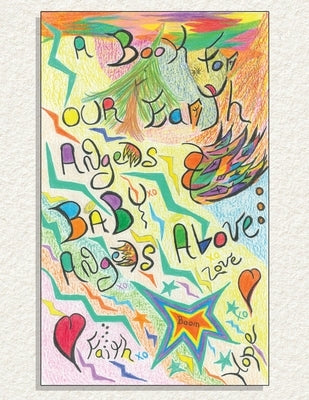 A Book for
our Earth
Angels &
xo
Baby
Angels Above...
xo
xo
Love
xo
Boom
xo
Faith xo
Hope